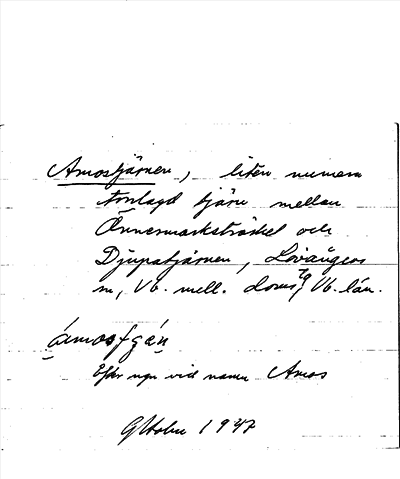 Amostjärnen, liten numera
torrlagd tjärn mellan
Önnesmarksträsket och
Djupatjärnen, Lövångers
sn, Vb. mell. doms tg, Vb. län.
ámosfgán
Efter ngn vid namn Amos
GHolm 1947